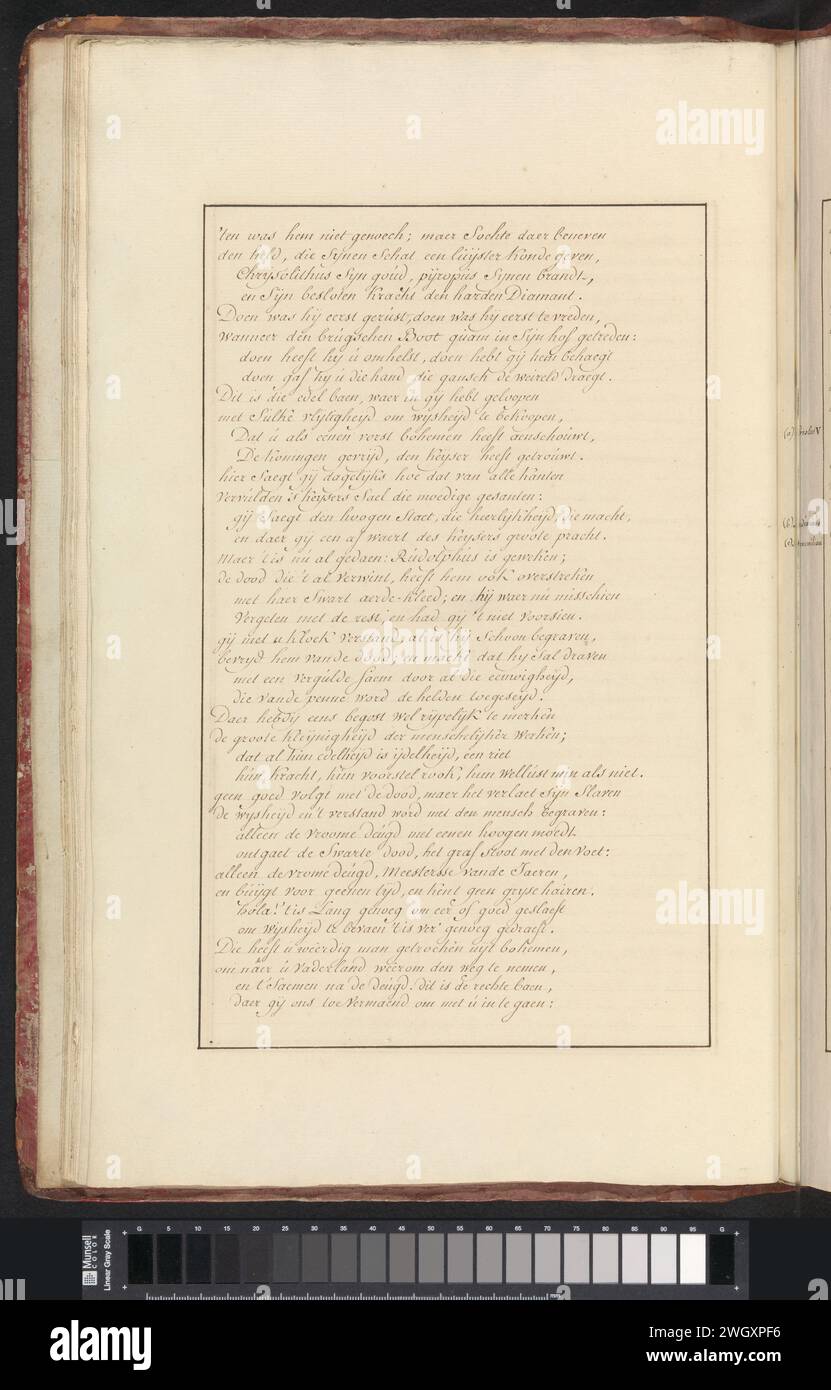 'ten was hem niet genoech; maer Sochte daer beneven
den held, die Sijnen Schat een lúijster konde geven,
Chrysolithus Sijn goúd, pijropús Sijnen brandt,
en Sijn besloten kracht den harden Diamant.
Doen was hij eerst gerúst, doen was hij eerst te vreden,
wanneer den brúgschen Boot quam in Sijn hof getreden:
doen heeft hij ú omhelst, doen hebt gij hem behaegt
doen gaf hij ú die hand die gansch de weireld draegt.
Dit is die edel baen, waer in gij hebt geloopen
met Sulke vlijtigheijd om wijsheijd te bekoopen,
Dat ú als eenen vorst bohemen heeft aenschoúwt,
De koningen gevrijd, den keijser heeft getroúwt.
hier Saegt gij dagelijks hoe dat van alle kanten
vervulden 's keijsers Sael die moedige gesanten:
gij Saegt den hoogen Staet, die heerlijkheijd, die macht,
en daer gij een af waert des keijsers groote pracht.
Maer 'tis nú al gedaen: Rúdolphús is geweken;
de dood die 't al verwint, heeft hem oók overstreken
met haer Swart aerde-kleed; en hij waer nú misschien
Vergeten met de rest, en had gij 't niet voorsien.
gij met u kloek verstand, al is hij Schoon begraven,
bevrijd hem van de dood, en maekt dat hij Sal draven
met een vergulde faem door al die eeuwigheijd,
die vande penne word de helden toegeseijd.
Daer hebdij eens begost wel rijpelijk te merken
de groote kleijnigheijd der menschelijker werken;
dat al hún edelheijd is ijdelheijd, een riet
hún kracht, hún voorstel rook, hun wellúst min als niet.
geen goed volgt met de dood, maer het verlaet Sijn Slaven
de wijsheijd en 't verstand word met den mensch begraven:
alleen de vroome deúgd met eenen hoogen moedt
ontgaet de Swarte dood, het graf stoot met den voet:
alleen de vrome deúgd, Meestersse vande Jaeren,
en búijgt voor geenen tijd, en kent geen grijse hairen.
hola! 'tis Lang genoeg om eer of goed geslaeft
om wijsheijd te bevaen 'tis ver' genoeg gedraeft.
Die heeft u weerdig man getrocken uijt bohemen,
om naer ú Vaderland weerom den weg te nemen,
en t' Saemen na de deúgd. dit is de rechte baen,
daer gij ons toe vermaend om met ú in te gaen:
(a)
(b)
(c)
alamy
Munsell
COLOR
Linear Gray Scale
G 5 10 15 20 25 30 35 40 45 50 55 60 65 70 75 80 85 90 95 G
mm
alamy
Image ID: 2WGXPF6
www.alamy.com